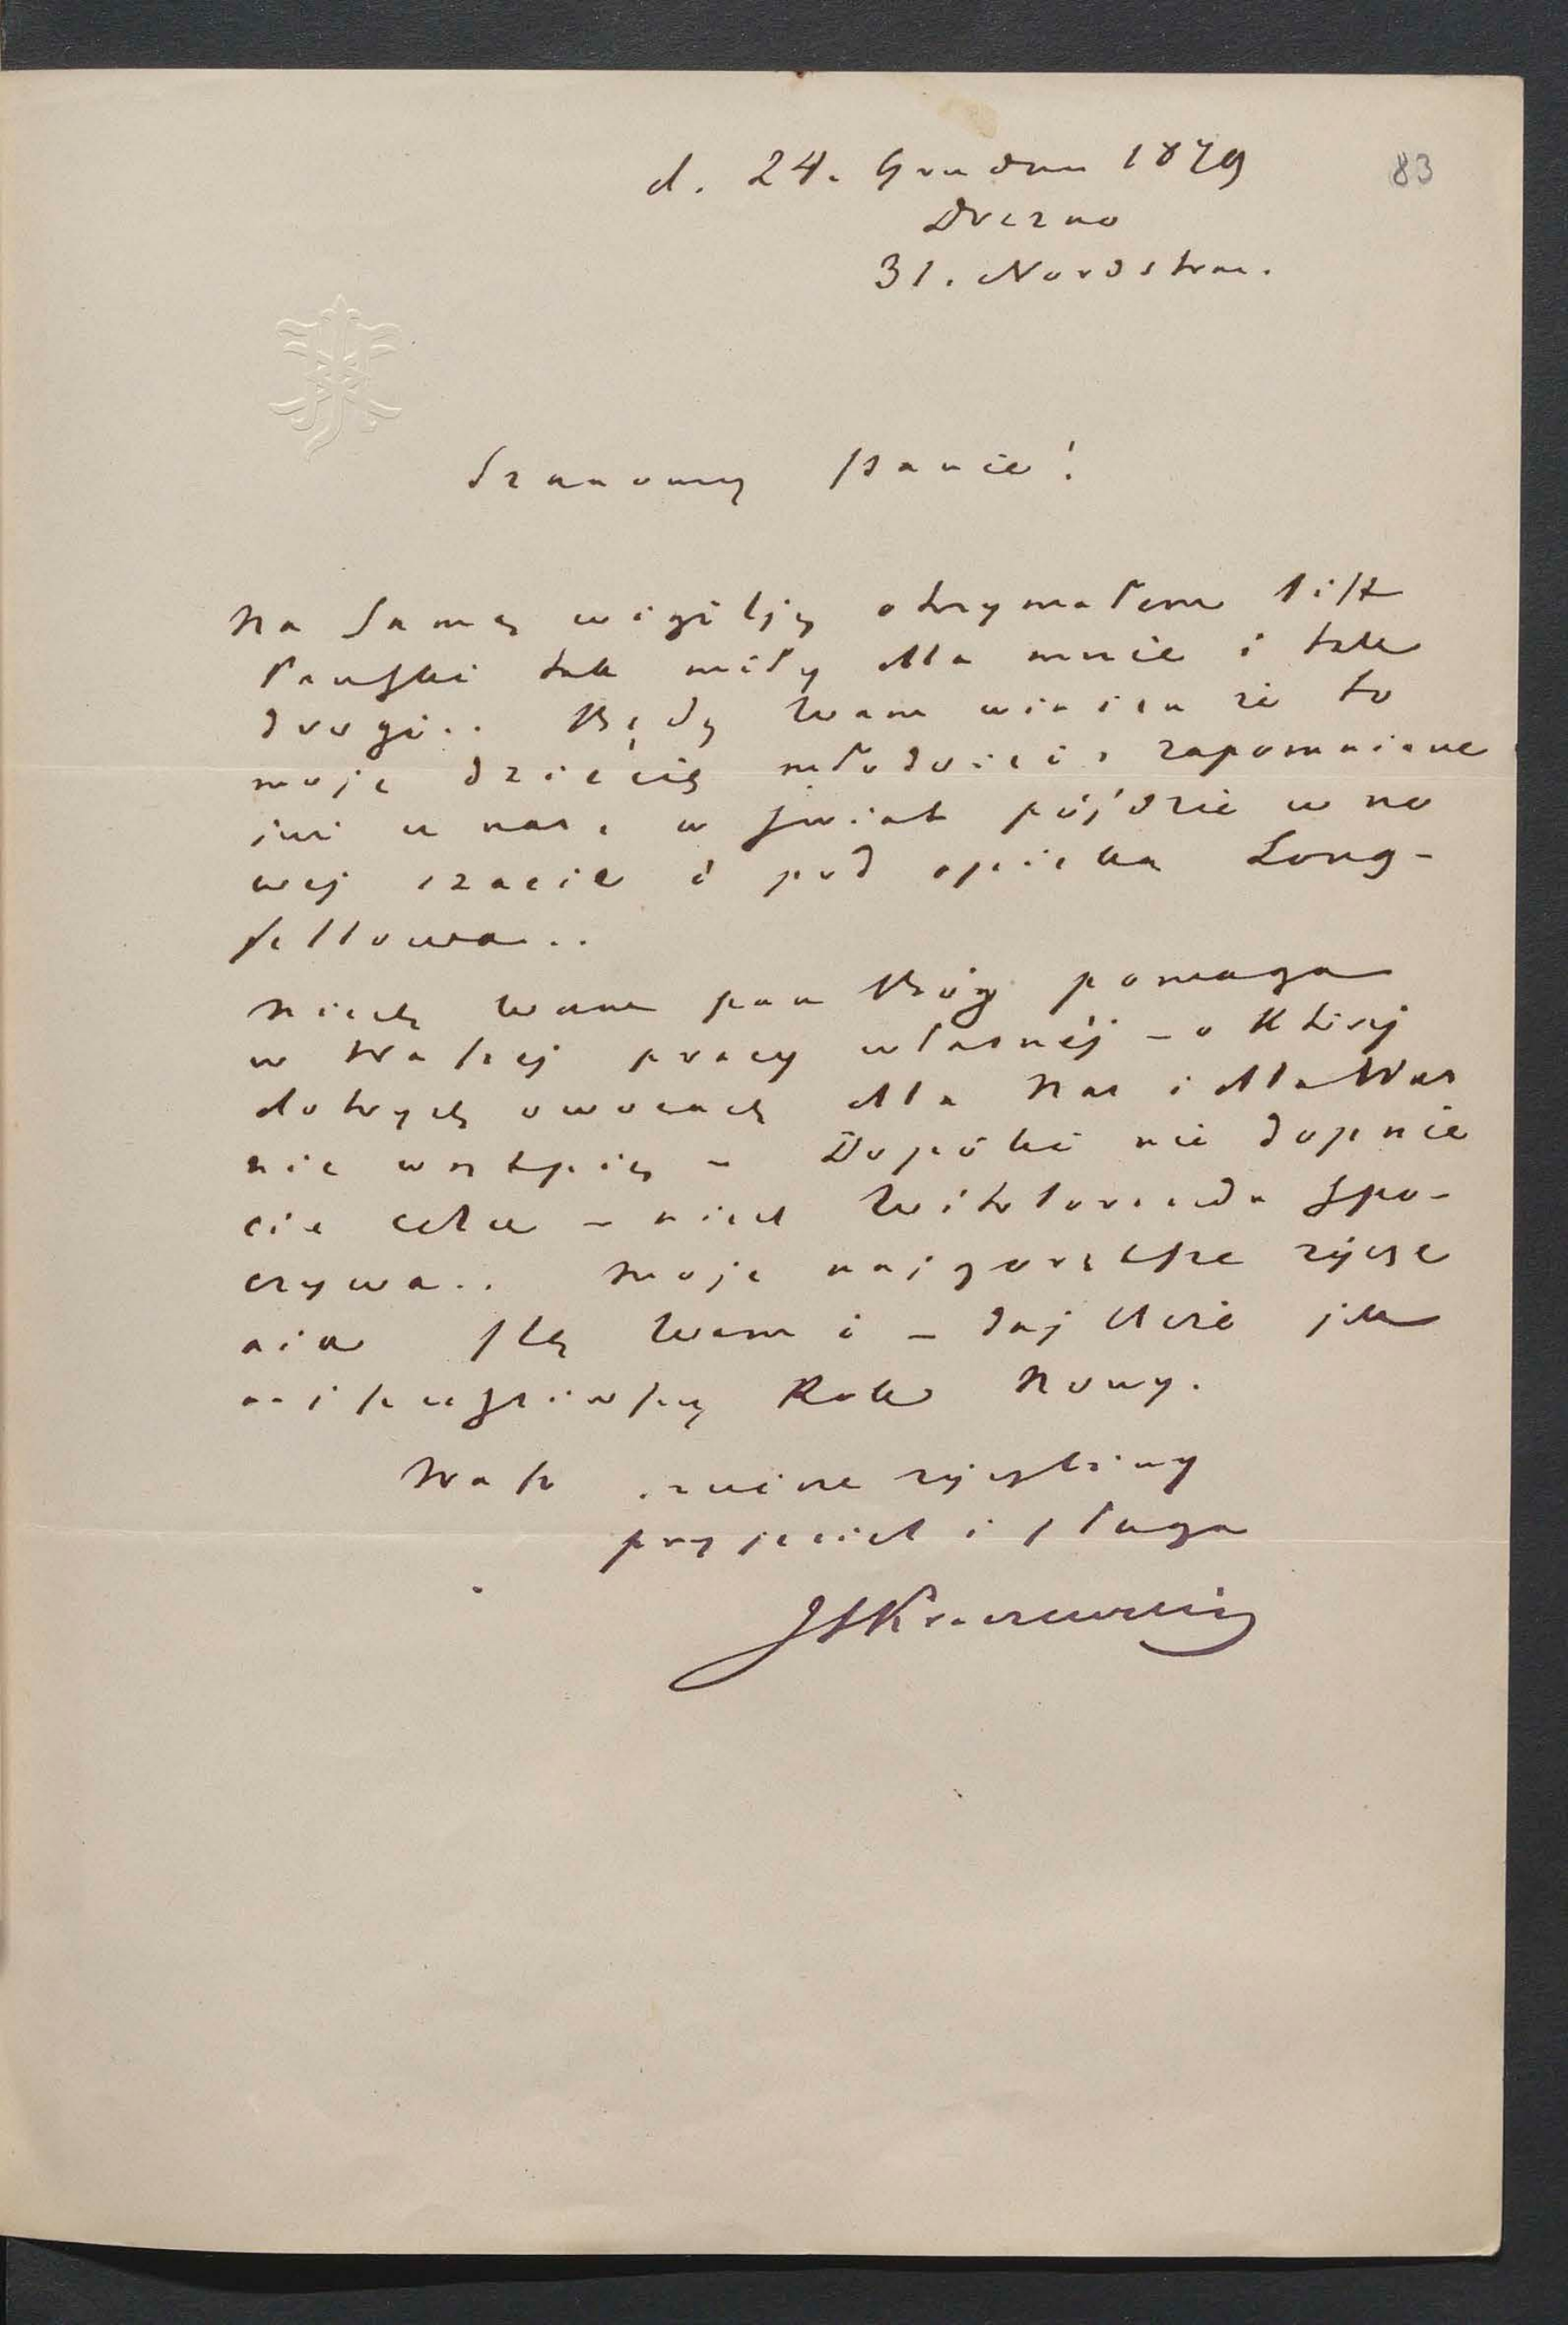 d. 24. Grudnia 1879
83
Drezno
31. Nordstras.
Szanowny Panie!
Na samą wigilję otrzymałem list
Pański tak miły dla mnie i tak
drogi.. Będę Wam winien że to
moje dziecię młodości, zapomniane
już u nas, w świat pójdzie w no
wej szacie i pod opieką Long-
fellowa..
Niech Wam pan Bóg pomaga
w Waszej pracy własnéj – o któréj
dobrych owocach dla Nas i dla Was
nie wątpię – Dopóki nie dopnie
cie celu – niech Witolorauda spo-
czywa.. Moje najgorętsze życze
nia ślę Wam i – daj Boże jak
najszczęśliwszy Rok Nowy.
Wasz życzliwy
przyjaciel i sługa
JIKraszewski